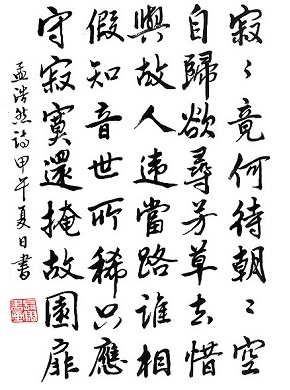 寂〻竟何待朝〻空
自歸欲尋芳草去惜
與故人違當路誰相
假知音世所稀只應
守寂寞還掩故園扉
孟浩然詩甲午夏日書